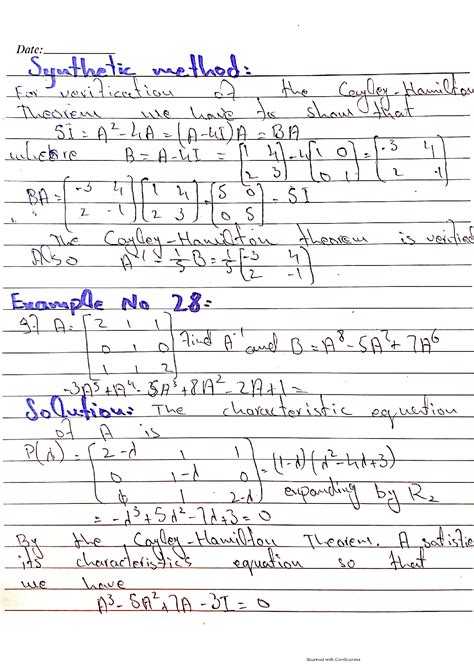 Date:
Synthetic method:
For verification of the Cayley-Hamilton
Theorem we have to show that
5I = A²-4A = (A-4I)A = BA
where B = A-4I = [1 4; 2 3] - 4[1 0; 0 1] = [-3 4; 2 -1]
BA = [-3 4; 2 -1] [1 4; 2 3] = [5 0; 0 5] = 5I
The Cayley-Hamilton theorem is verified
Also A⁻¹ = 1/5 B = 1/5 [-3 4; 2 -1]
Example No 28:
If A = [2 1 1; 0 1 0; 1 1 2] find A⁻¹ and B = A⁸-5A⁷+7A⁶
-3A⁵+A⁴-5A³+8A²-2A+1=
Solution: The characteristic equation
of A is
P(λ) = [2-λ 1 1; 0 1-λ 0; 1 2-λ] = (1-λ)(λ²-4λ+3)
expanding by R₂
= -λ³+5λ²-7λ+3=0
By the Cayley-Hamilton Theorem. A satistie
its characteristics equation so that
we have
A³-5A²+7A-3I=0
Scanned with CamScanner